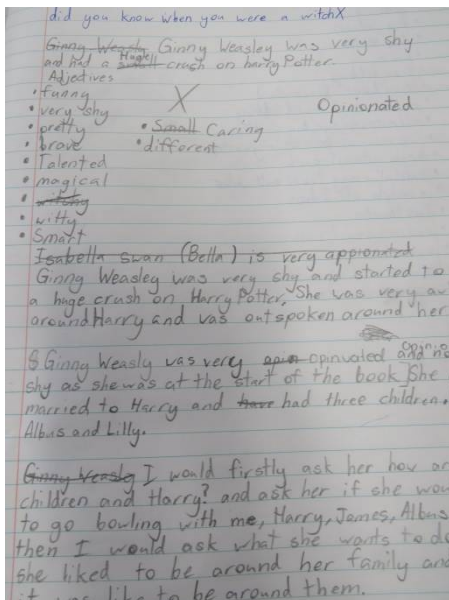 did you know when you were a witchX
Ginny Weasly Ginny Weasley was very shy
and had a small Huge crush on harry Potter.
Adjectives
• funny
X
Opinionated
• very shy
• pretty
• Small Caring
• brave
• different
• Talented
• magical
• witchy
• witty
• Smart
Isabella Swan (Bella) is very appionated
Ginny Weasley was very shy and started to
a huge crush on Harry Potter, She was very
around Harry and was outspoken around her
Opinio
Ginny Weasly was very opinvated and
shy as she was at the start of the book She
married to Harry and have had three children.
Albus and Lilly.
Ginny Weasly I would firstly ask her how
children and Harry? and ask her if she
to go bowling with me, Harry, James, Albus
then I would ask what she wants to
she liked to be around her family
it was like to be around them.